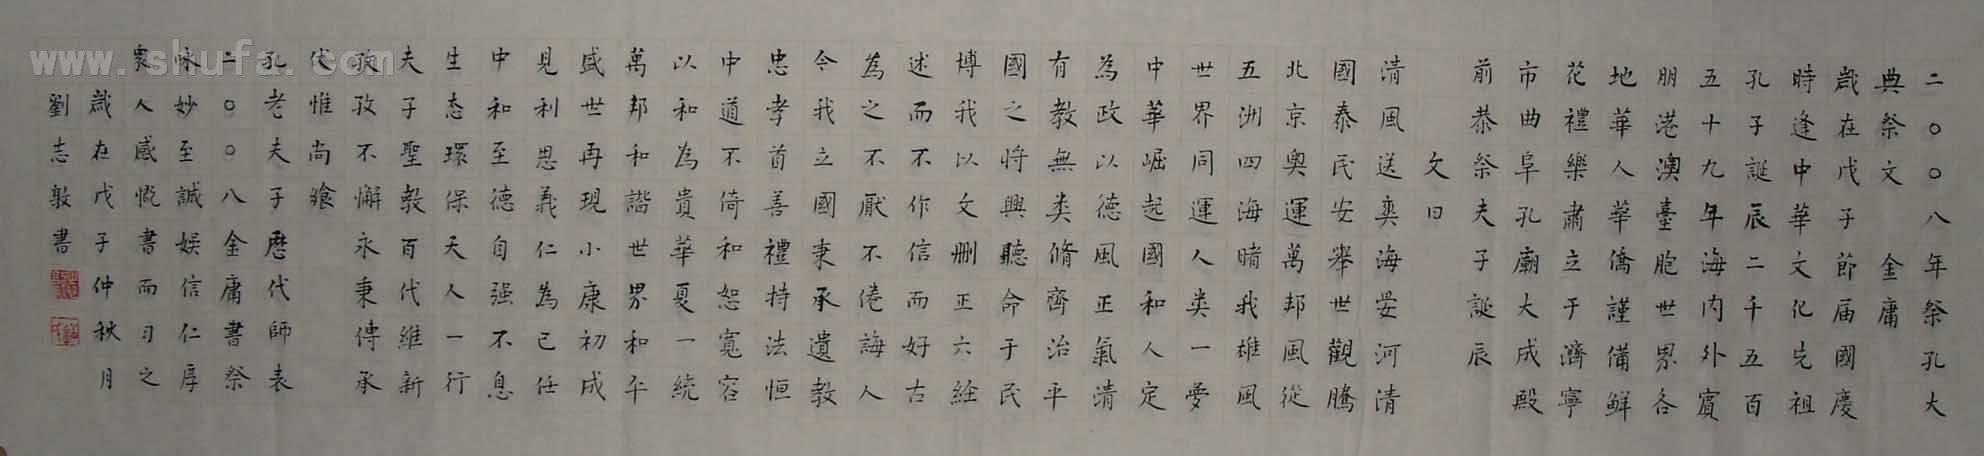 二〇〇八年祭孔大
典祭文　金庸
歲在戊子節届國慶
時逢中華文化先祖
孔子誕辰二千五百
五十九年海内外賓
朋港澳臺胞世界各
地華人華僑謹備鲜
花禮樂肅立于濟寧
市曲阜孔廟大成殿
前恭祭夫子誕辰
文曰
清風送爽海晏河清
國泰民安舉世觀騰
北京奥運萬邦風從
五洲四海睹我雄風
世界同運人类一夢
中華崛起國和人定
為政以德風正氣清
有教無类脩齊治平
國之将興聽命于民
博我以文删正六经
述而不作信而好古
為之不厭不倦誨人
令我立國秉承遺教
忠孝首善禮持法恒
中道不倚和恕寬容
以和為貴華夏一統
萬邦和諧世界和平
盛世再現小康初成
見利思義仁為己任
中和至德自强不息
生态環保天人一行
夫子聖教百代維新
孜孜不懈永秉傳承
代惟尚飨
孔老夫子歷代師表
二〇〇八金庸書祭
咏妙至誠娱信仁厚
衆人感慨書而习之
歲在戊子仲秋月
劉志敦書
www.shufa.com